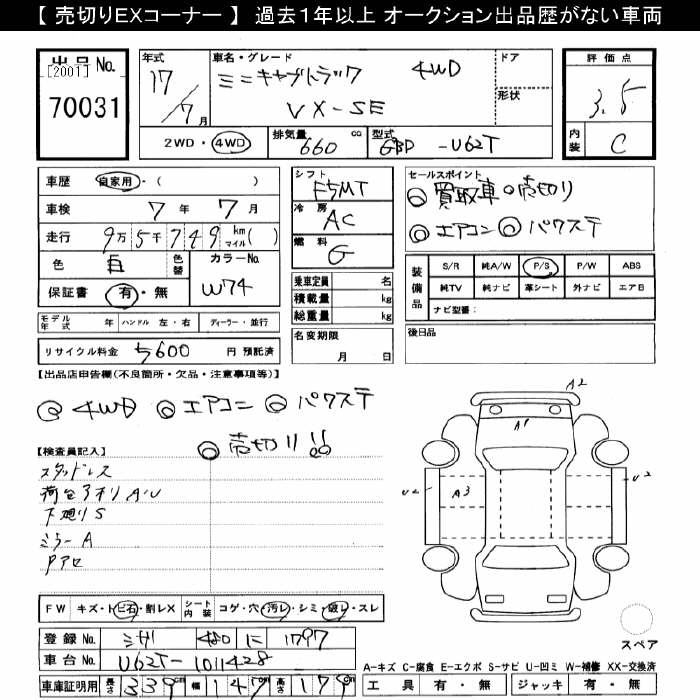 【 売切りEXコーナー 】 過去1年以上 オークション出品歴がない車両
出品 No.
[2001]
70031
年式
17/7月
車名・グレード
ミニキャブトラック 4WD
VX-SE
ドア
形状
2WD・4WD
排気量
660 cc
型式
GBD-U62T
評価点
3.5
内装
C
車歴 自家用・( )
車検 7年 7月
走行 9万5千749 km マイル( )
色 白 色替
カラーNo.
W74
保証書 有・無
モデル年式 年 ハンドル 左・右 ディーラー・並行
リサイクル料金 ち600 円 預託済
シフト
F5MT
冷房
AC
燃料
G
乗車定員 名
積載量 kg
総重量 kg
名変期限
月 日
セールスポイント
◎買取車◎売切り
◎エアコン◎パワステ
装備品
S/R 純A/W P/S P/W ABS
純TV 純ナビ 革シート 外ナビ エアB
ナビ型番:
後日品
【出品店申告欄(不良箇所・欠品・注意事項等)】
◎4WD ◎エアコン ◎パワステ
◎売切り!!
【検査員記入】
スタッドレス
荷台アオリ A・U
下廻り S
ミラー A
FW キズ・トビ石・割レX シート内装 コゲ・穴・汚レ・シミ・破レ・スレ
登録 No. 480 に 1797
車台 No. U62T-1011428
車庫証明用 長さ 339 幅 147 高さ 179
A2
A1
U2
A3
U2
スペア
A-キズ C-腐食 E-エクボ S-サビ U-凹ミ W-補修 XX-交換済
工具 有・無 ジャッキ 有・無